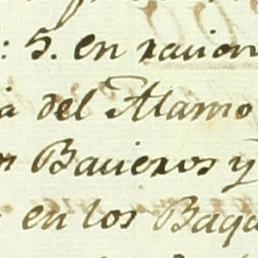 : 5. en racion
a del Alamo
Bacieros y
en los Baga